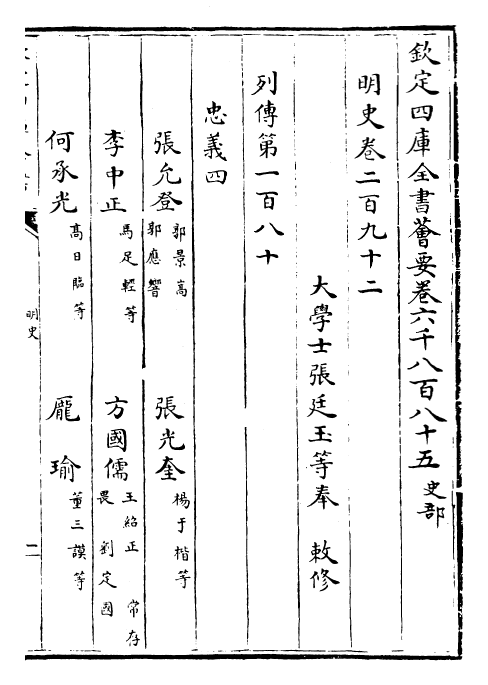 欽定四庫全書薈要卷六千八百八十五 史部
明史卷二百九十二
大學士張廷玉等奉 敕修
列傳第一百八十
忠義四
張允登 郭景嵩 郭應響 張光奎 楊于楷等
李中正 馬足輕等 方國儒 王紹正 常存畏 劉定國
何承光 高日臨等 龐瑜 董三謨等
明史